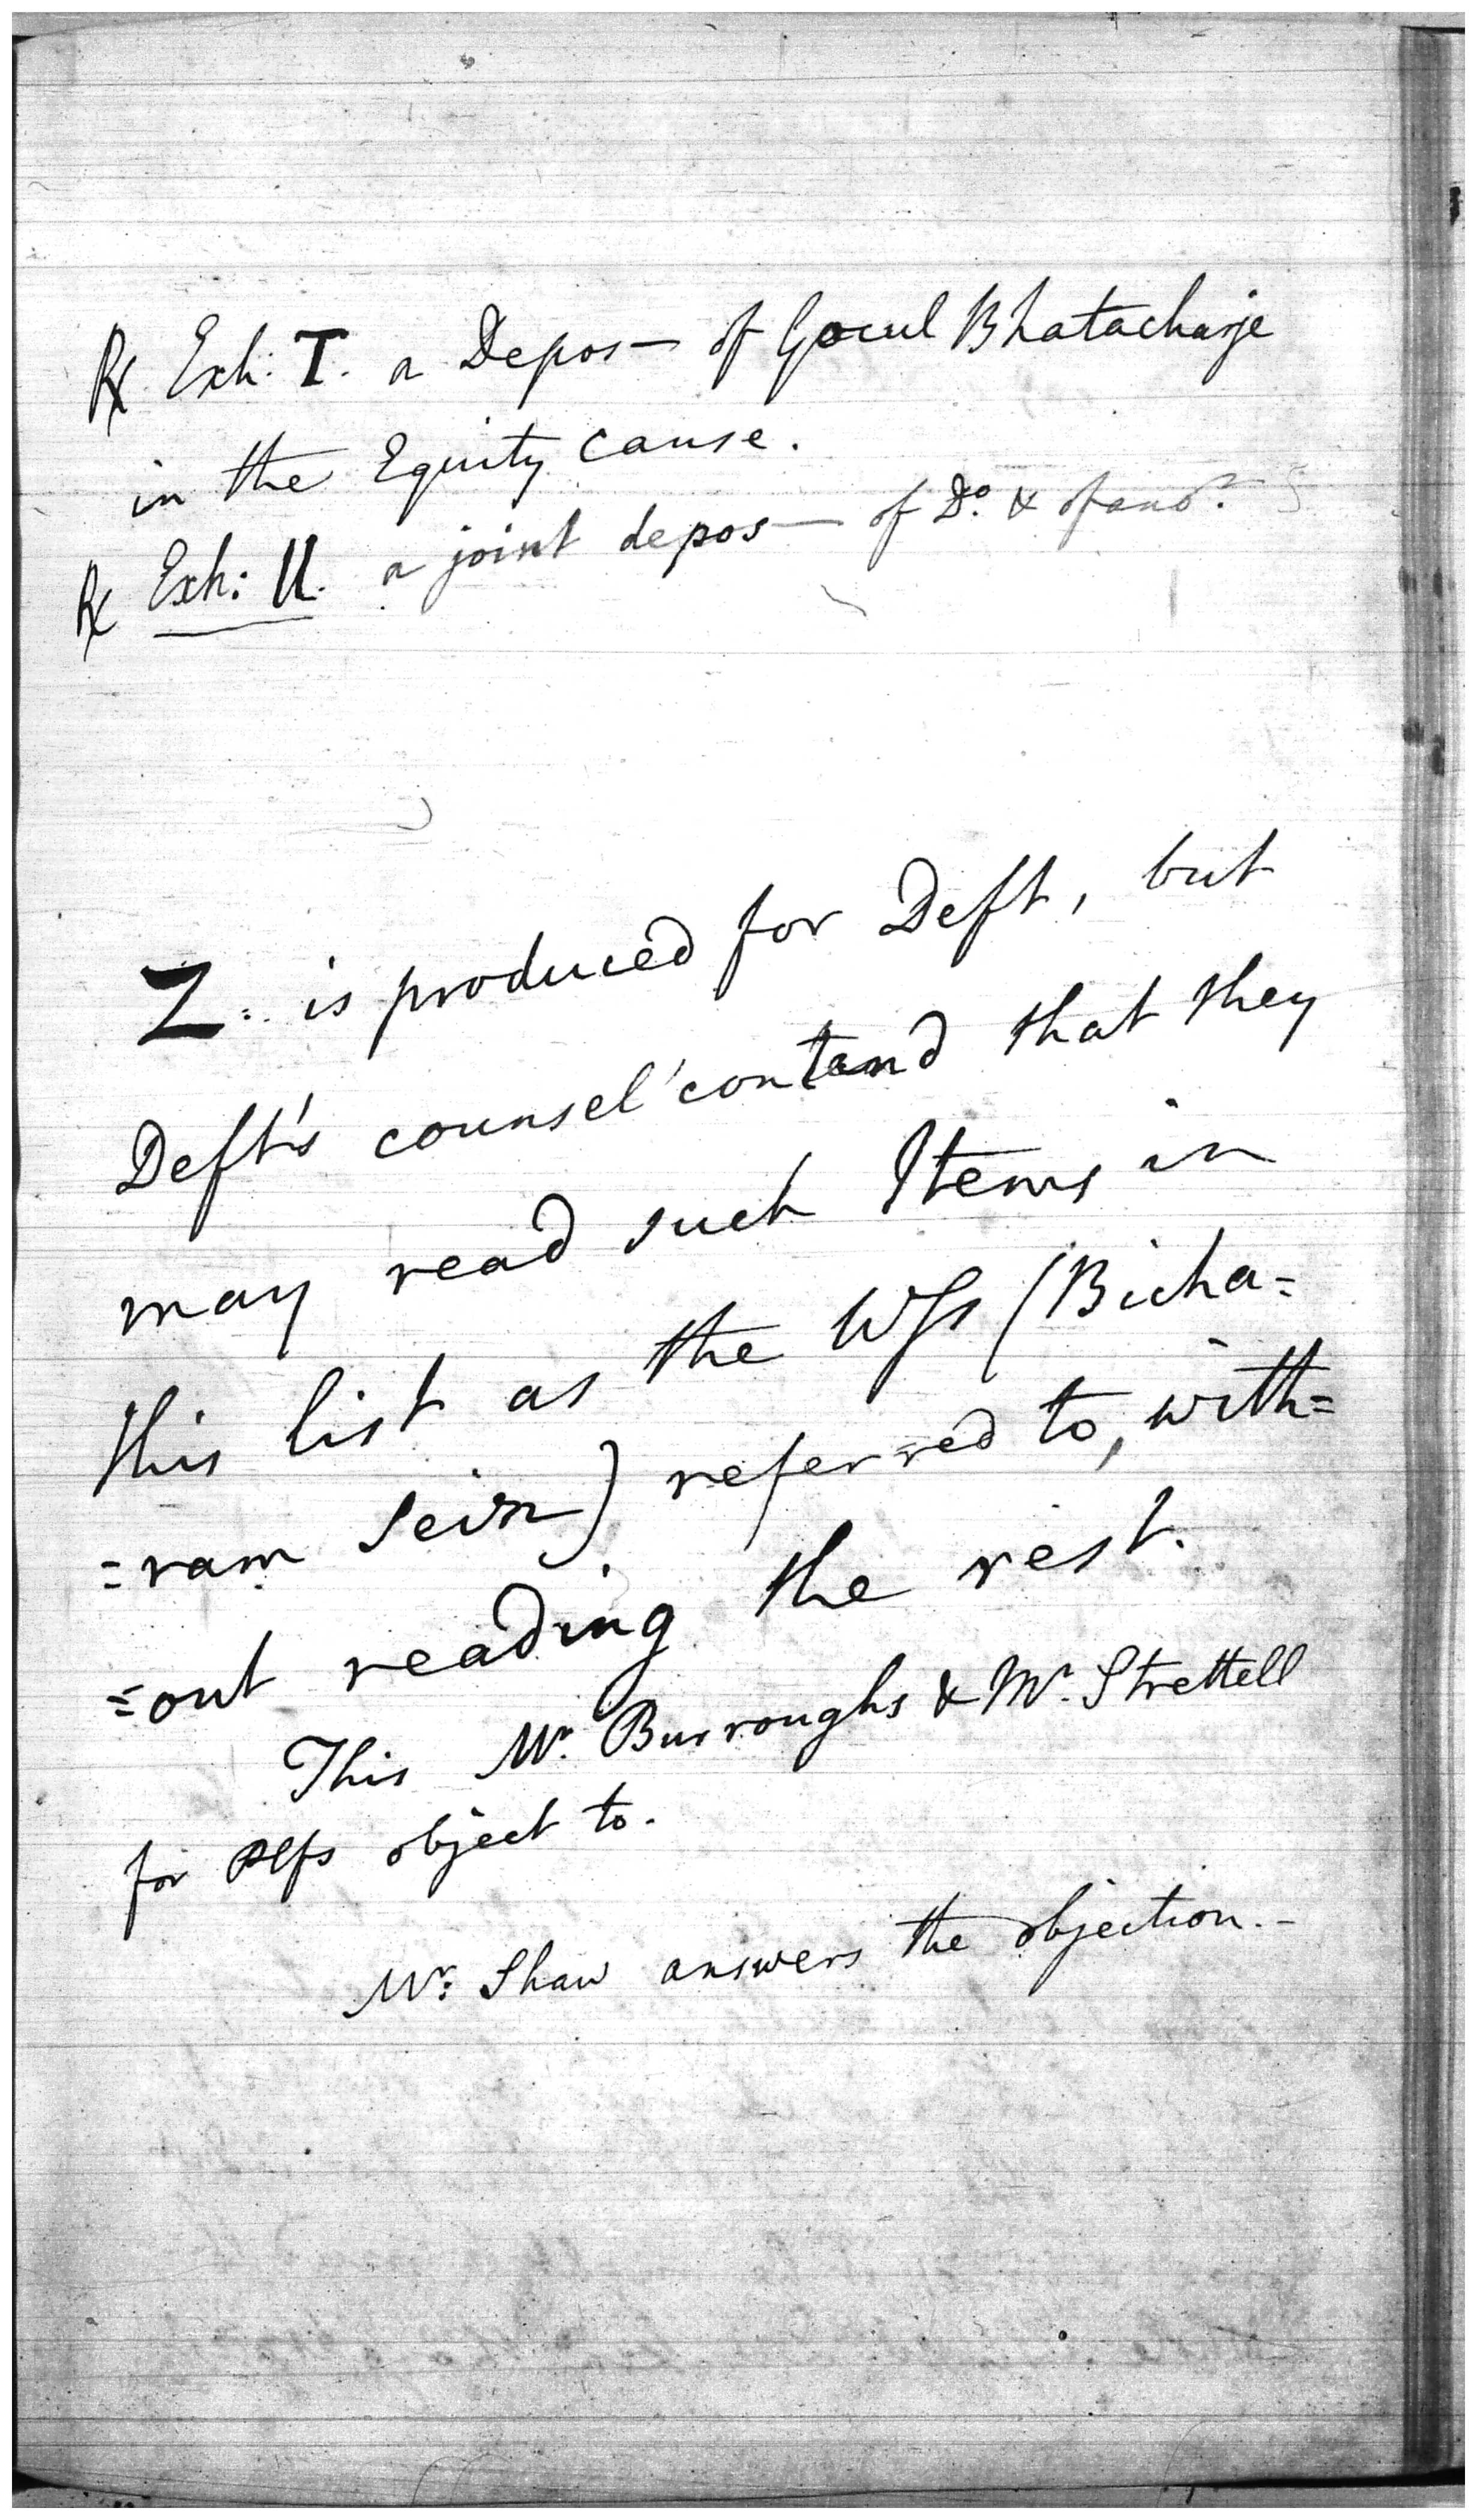 Rx Exh: T. a Depos— of Gocul Bhatacharje
in the Equity cause.
Rx Exh: U. a joint depos— of Do. & of anor.
Z. is produced for Deft, but
Deft's counsel contend that they
may read such Items in
this list as the Wss (Bicha=
=ram Sein) referred to, with=
=out reading the rest.
This Mr. Burroughs & Mr. Strettell
for Plfs object to.
Mr: Shaw answers the objection.-